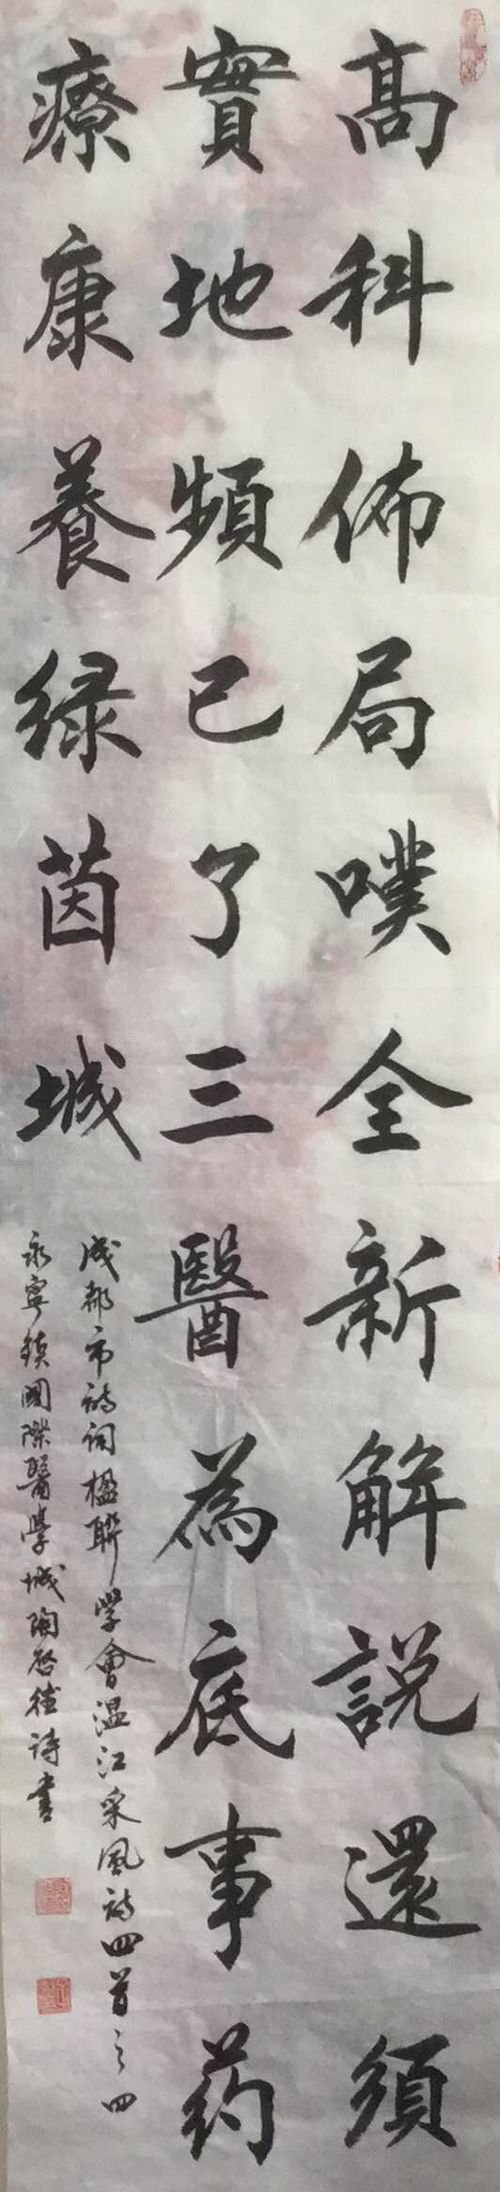 高科佈局噗全新解説還須
實地頻已了三醫為底事药
療康養绿茵城
成都市詩词楹联学會温江采風詩四首之四
永寧鎮國際醫學城陶啓德詩書